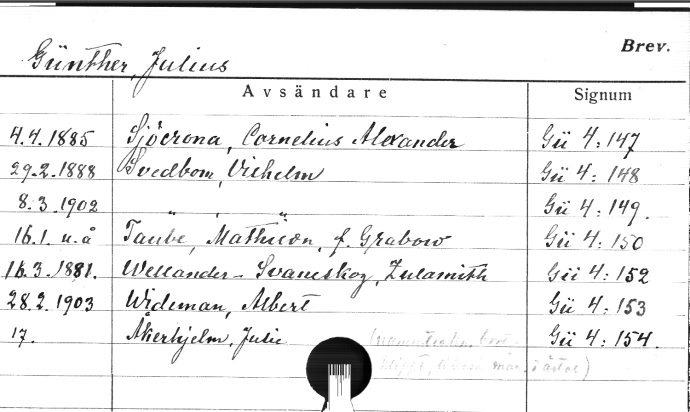 Brev.
Günther, Julius
Avsändare Signum
4.4.1885 Sjöcrona, Cornelius Alexander Gü 4:147
29.2.1888 Svedbom, Vilhelm Gü 4:148
8.3.1902 „ , „ Gü 4:149.
16.1. u.å Taube, Mathilda, f. Grabow Gü 4:150
16.3.1881. Wellander-Svaneskog, Zulamith Gü 4:152
28.2.1903 Wideman, Albert Gü 4:153
17. Åkerhjelm, Julie Gü 4:154.